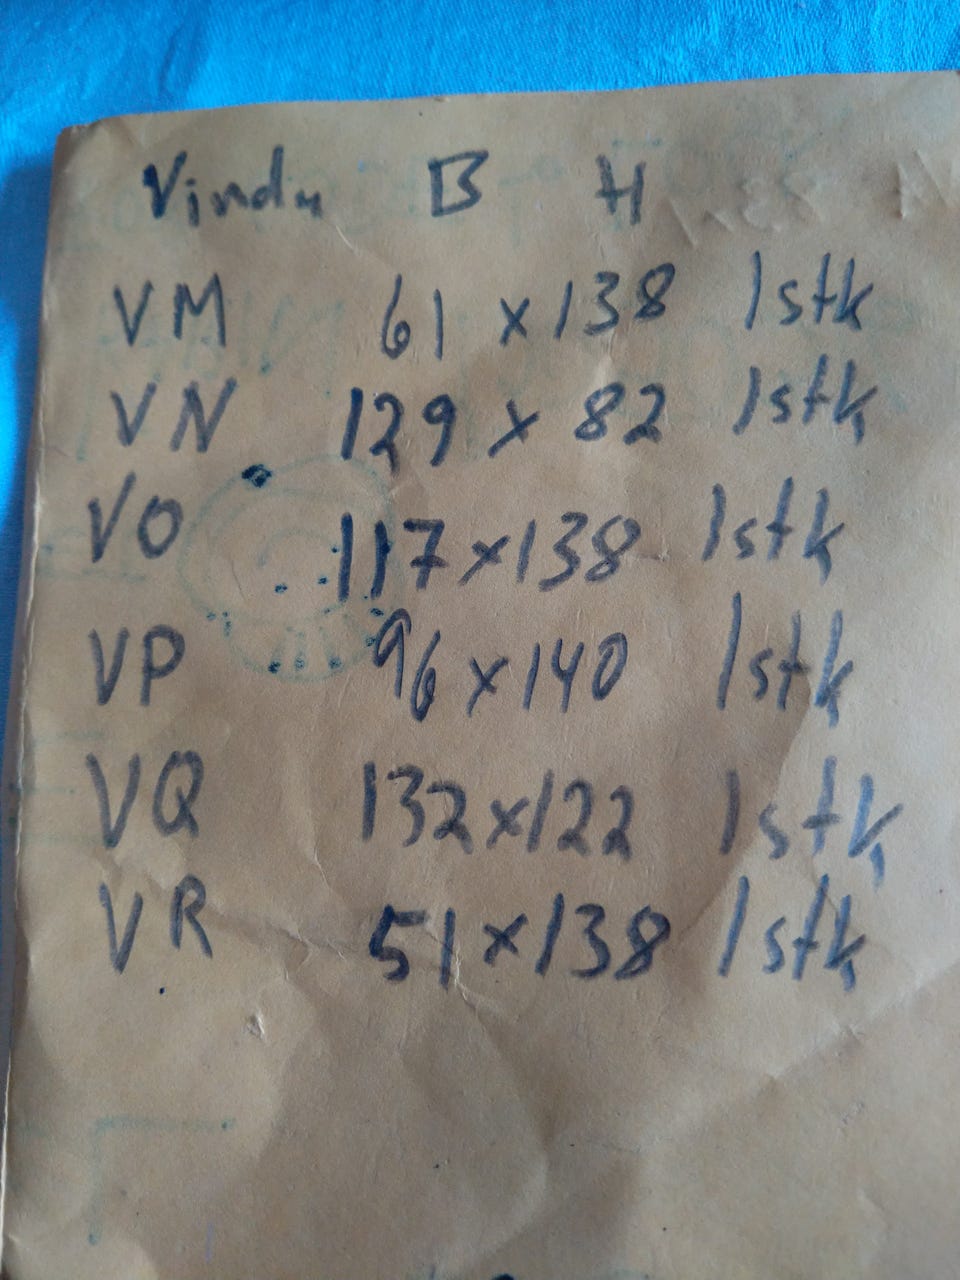 Vindu B H
VM 61 x 138 1stk
VN 129 x 82 1stk
VO 117 x 138 1stk
VP 96 x 140 1stk
VQ 132 x 122 1stk
VR 51 x 138 1stk